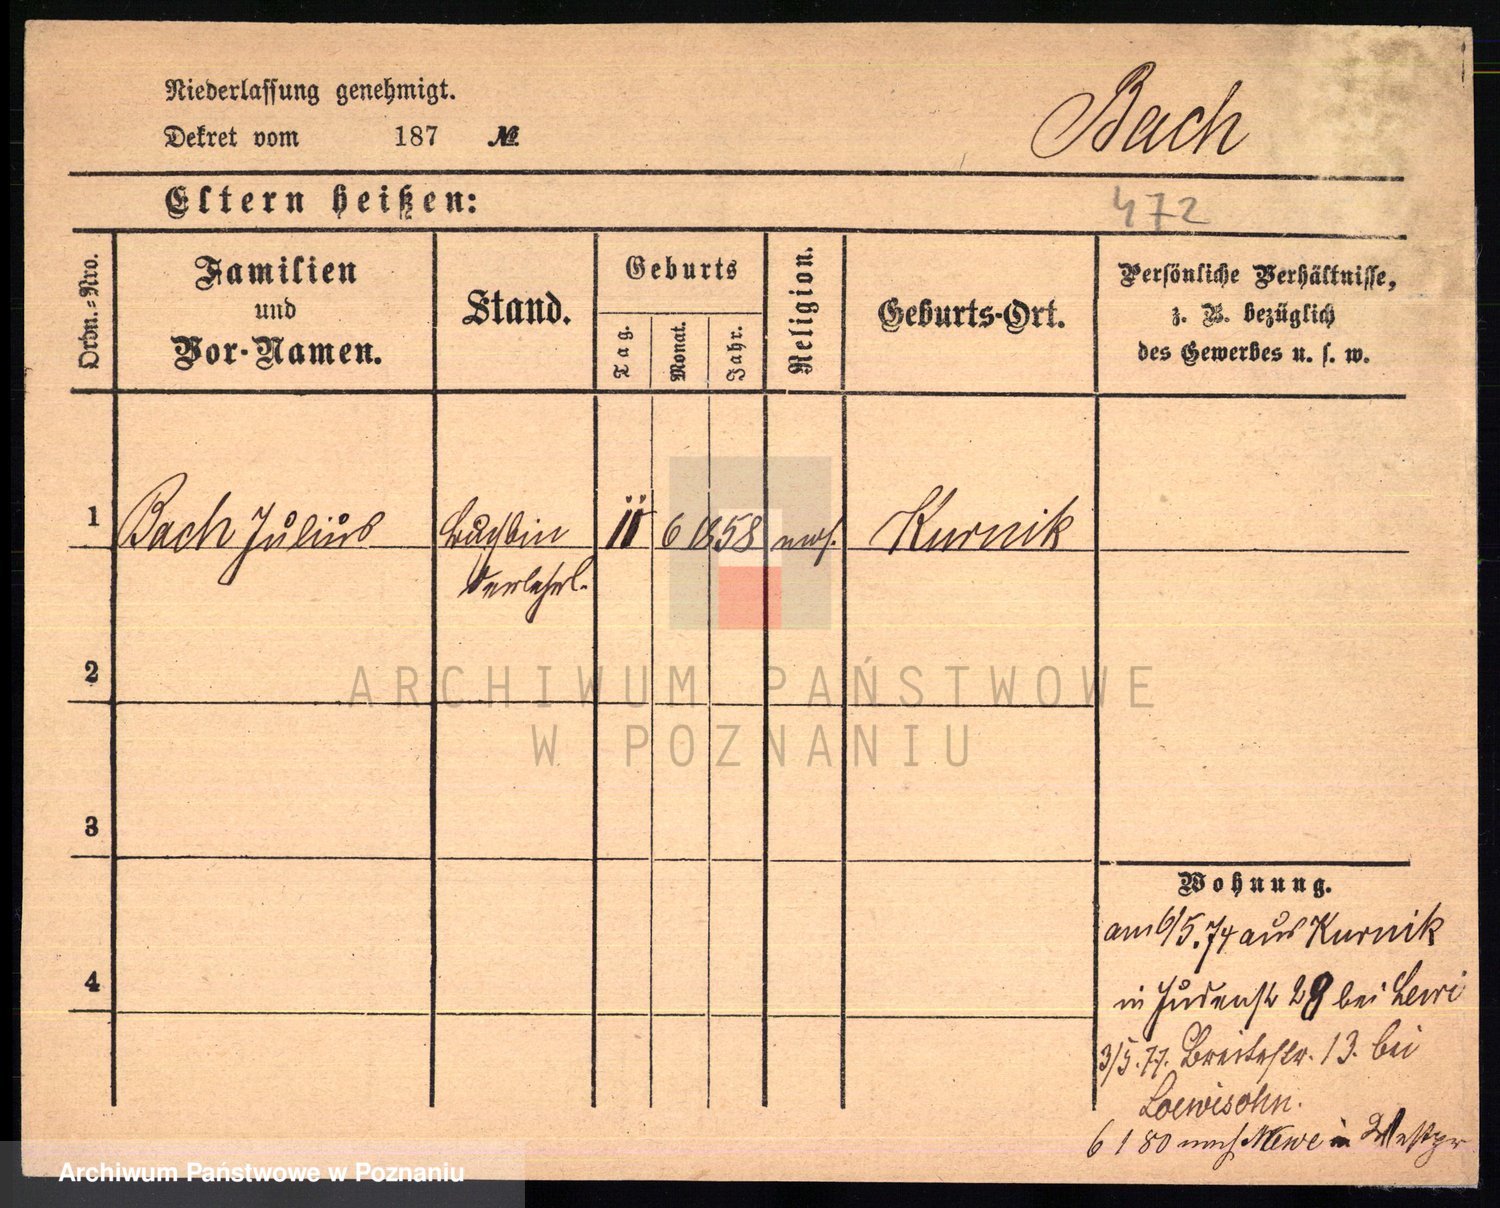 Niederlassung genehmigt.
Bach
Dekret vom 187 №
Eltern heißen:
472
Ordn.-Nro.
Familien
und
Vor-Namen.
Stand.
Geburts
Tag.
Monat.
Jahr.
Religion.
Geburts-Ort.
Persönliche Verhältnisse,
z. B. bezüglich
des Gewerbes u. s. w.
1 Bach Julius Buchbin 6 1858 Kurnik
derlehrl.
2
ARCHIWUM PAŃSTWOWE
W POZNANIU
3
Wohnung.
am 6/5.74 aus Kurnik
4
in Judenstr 28 bei Lewi
3/5.77. Breitestr. 13. bei
Loewisohn.
6 1 80 nach Mewe in Westpr
Archiwum Państwowe w Poznaniu